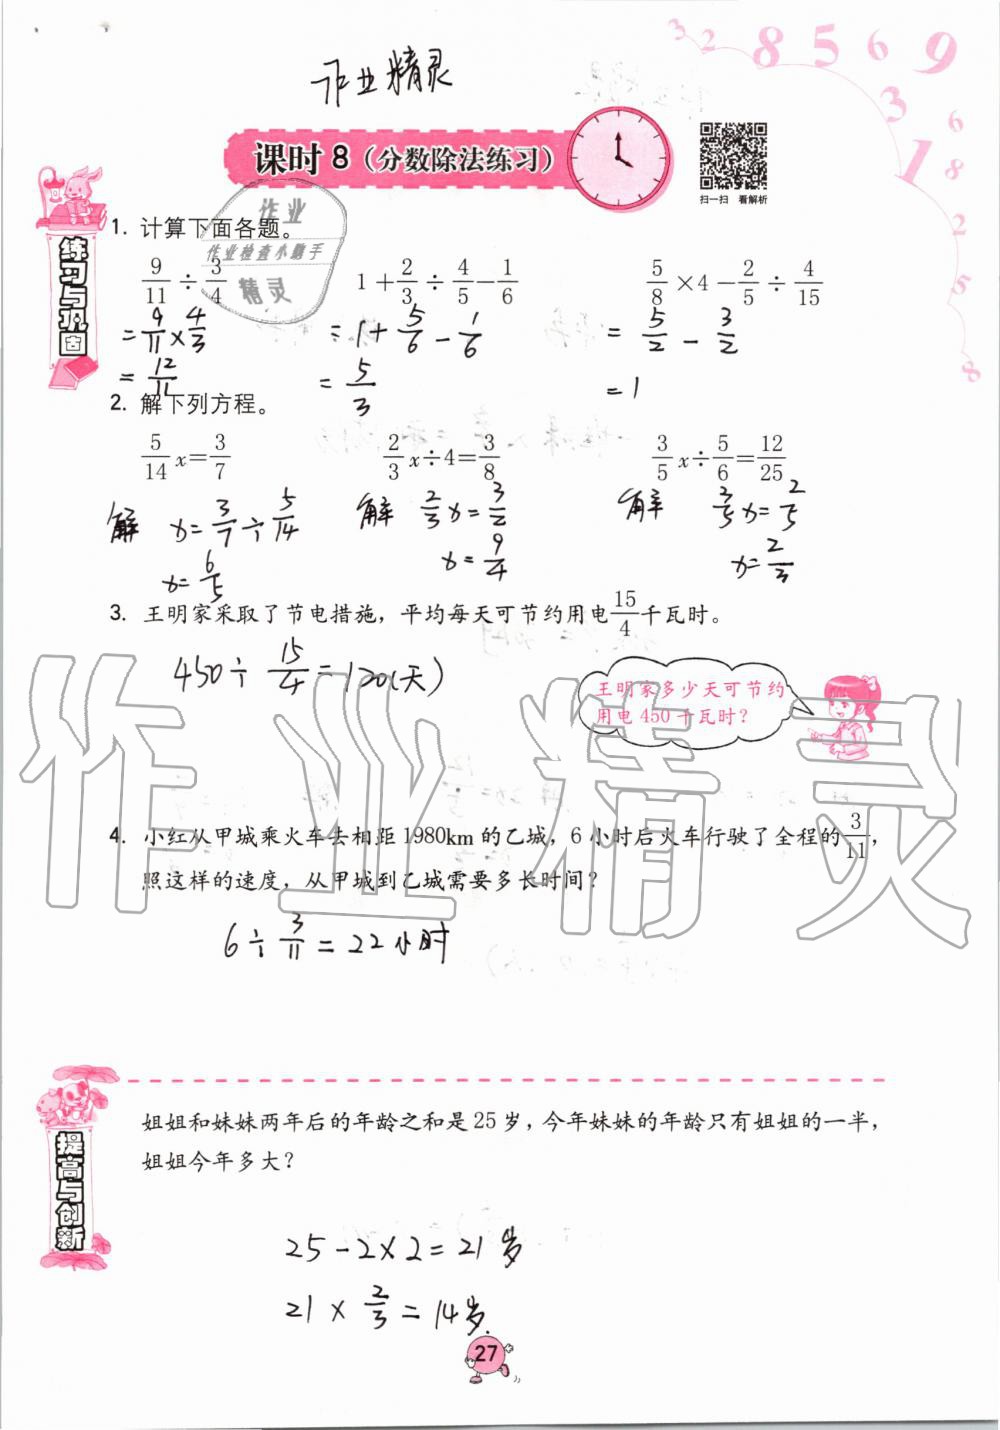 3 2 8 5 6 9 3 1 6 8 2 5 8
作业精灵
课时 8（分数除法练习）
扫一扫 看解析
作业
作业检查小助手
精灵
练习与巩固
1. 计算下面各题。
9/11 ÷ 3/4    1+2/3÷4/5-1/6    5/8×4-2/5÷4/15
=9/11×4/3    =1+5/6-1/6    =5/2-3/2
=12/11    =5/3    =1
2. 解下列方程。
5/14 x=3/7    2/3 x÷4=3/8    3/5 x÷5/6=12/25
解 x=3/7÷5/14    解 2/3x=3/2    解 3/5x=2/5
x=6/5    x=9/4    x=2/3
3. 王明家采取了节电措施，平均每天可节约用电15/4千瓦时。
450÷15/4=120(天)
王明家多少天可节约
用电450千瓦时？
作业精灵
4. 小红从甲城乘火车去相距1980km的乙城，6小时后火车行驶了全程的3/11，
照这样的速度，从甲城到乙城需要多长时间？
6÷3/11=22小时
提高与创新
姐姐和妹妹两年后的年龄之和是25岁，今年妹妹的年龄只有姐姐的一半，
姐姐今年多大？
25-2×2=21岁
21×2/3=14岁.
27